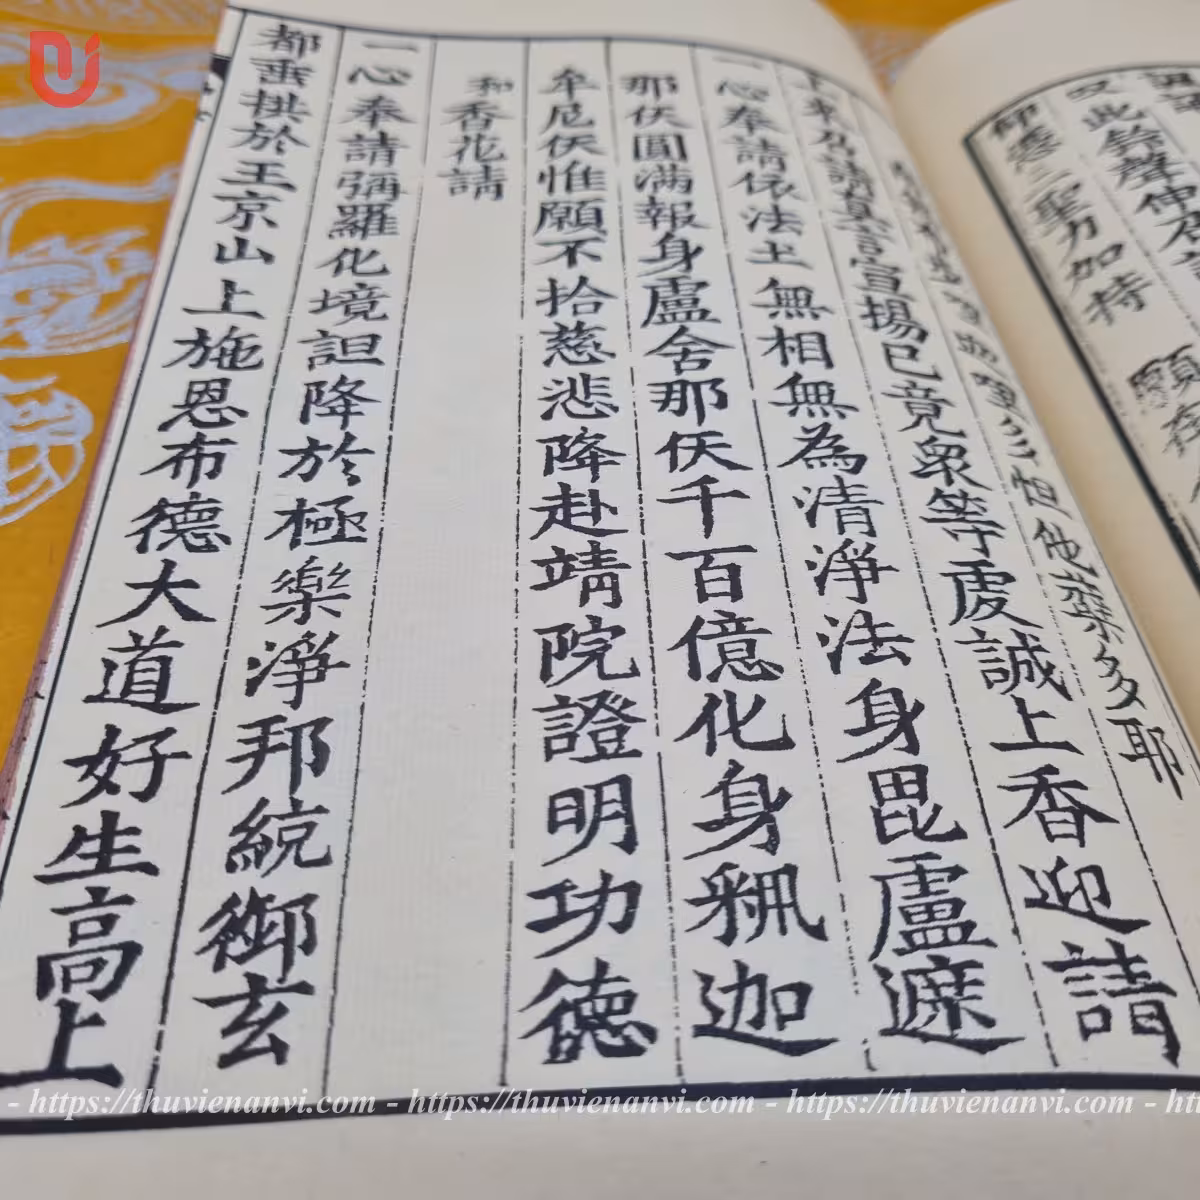 又此鈴聲伸
仰憑三聖力加持 願
怛他蘖多耶
上來召請真言宣揚已竟衆等虔誠上香迎請
一心奉請依法土無相無為清淨法身毘盧遮
那仸圓滿報身盧舍那仸千百億化身釈迦
牟尼仸惟願不捨慈悲降赴靖院證明功德
和香花請
一心奉請彌羅化境詚降於極樂淨邦統御玄
都垂拱於玉京山上施恩布德大道好生高上
- https://thuvienanvi.com - https://thuvienanvi.com - https://thuvienanvi.com - ht